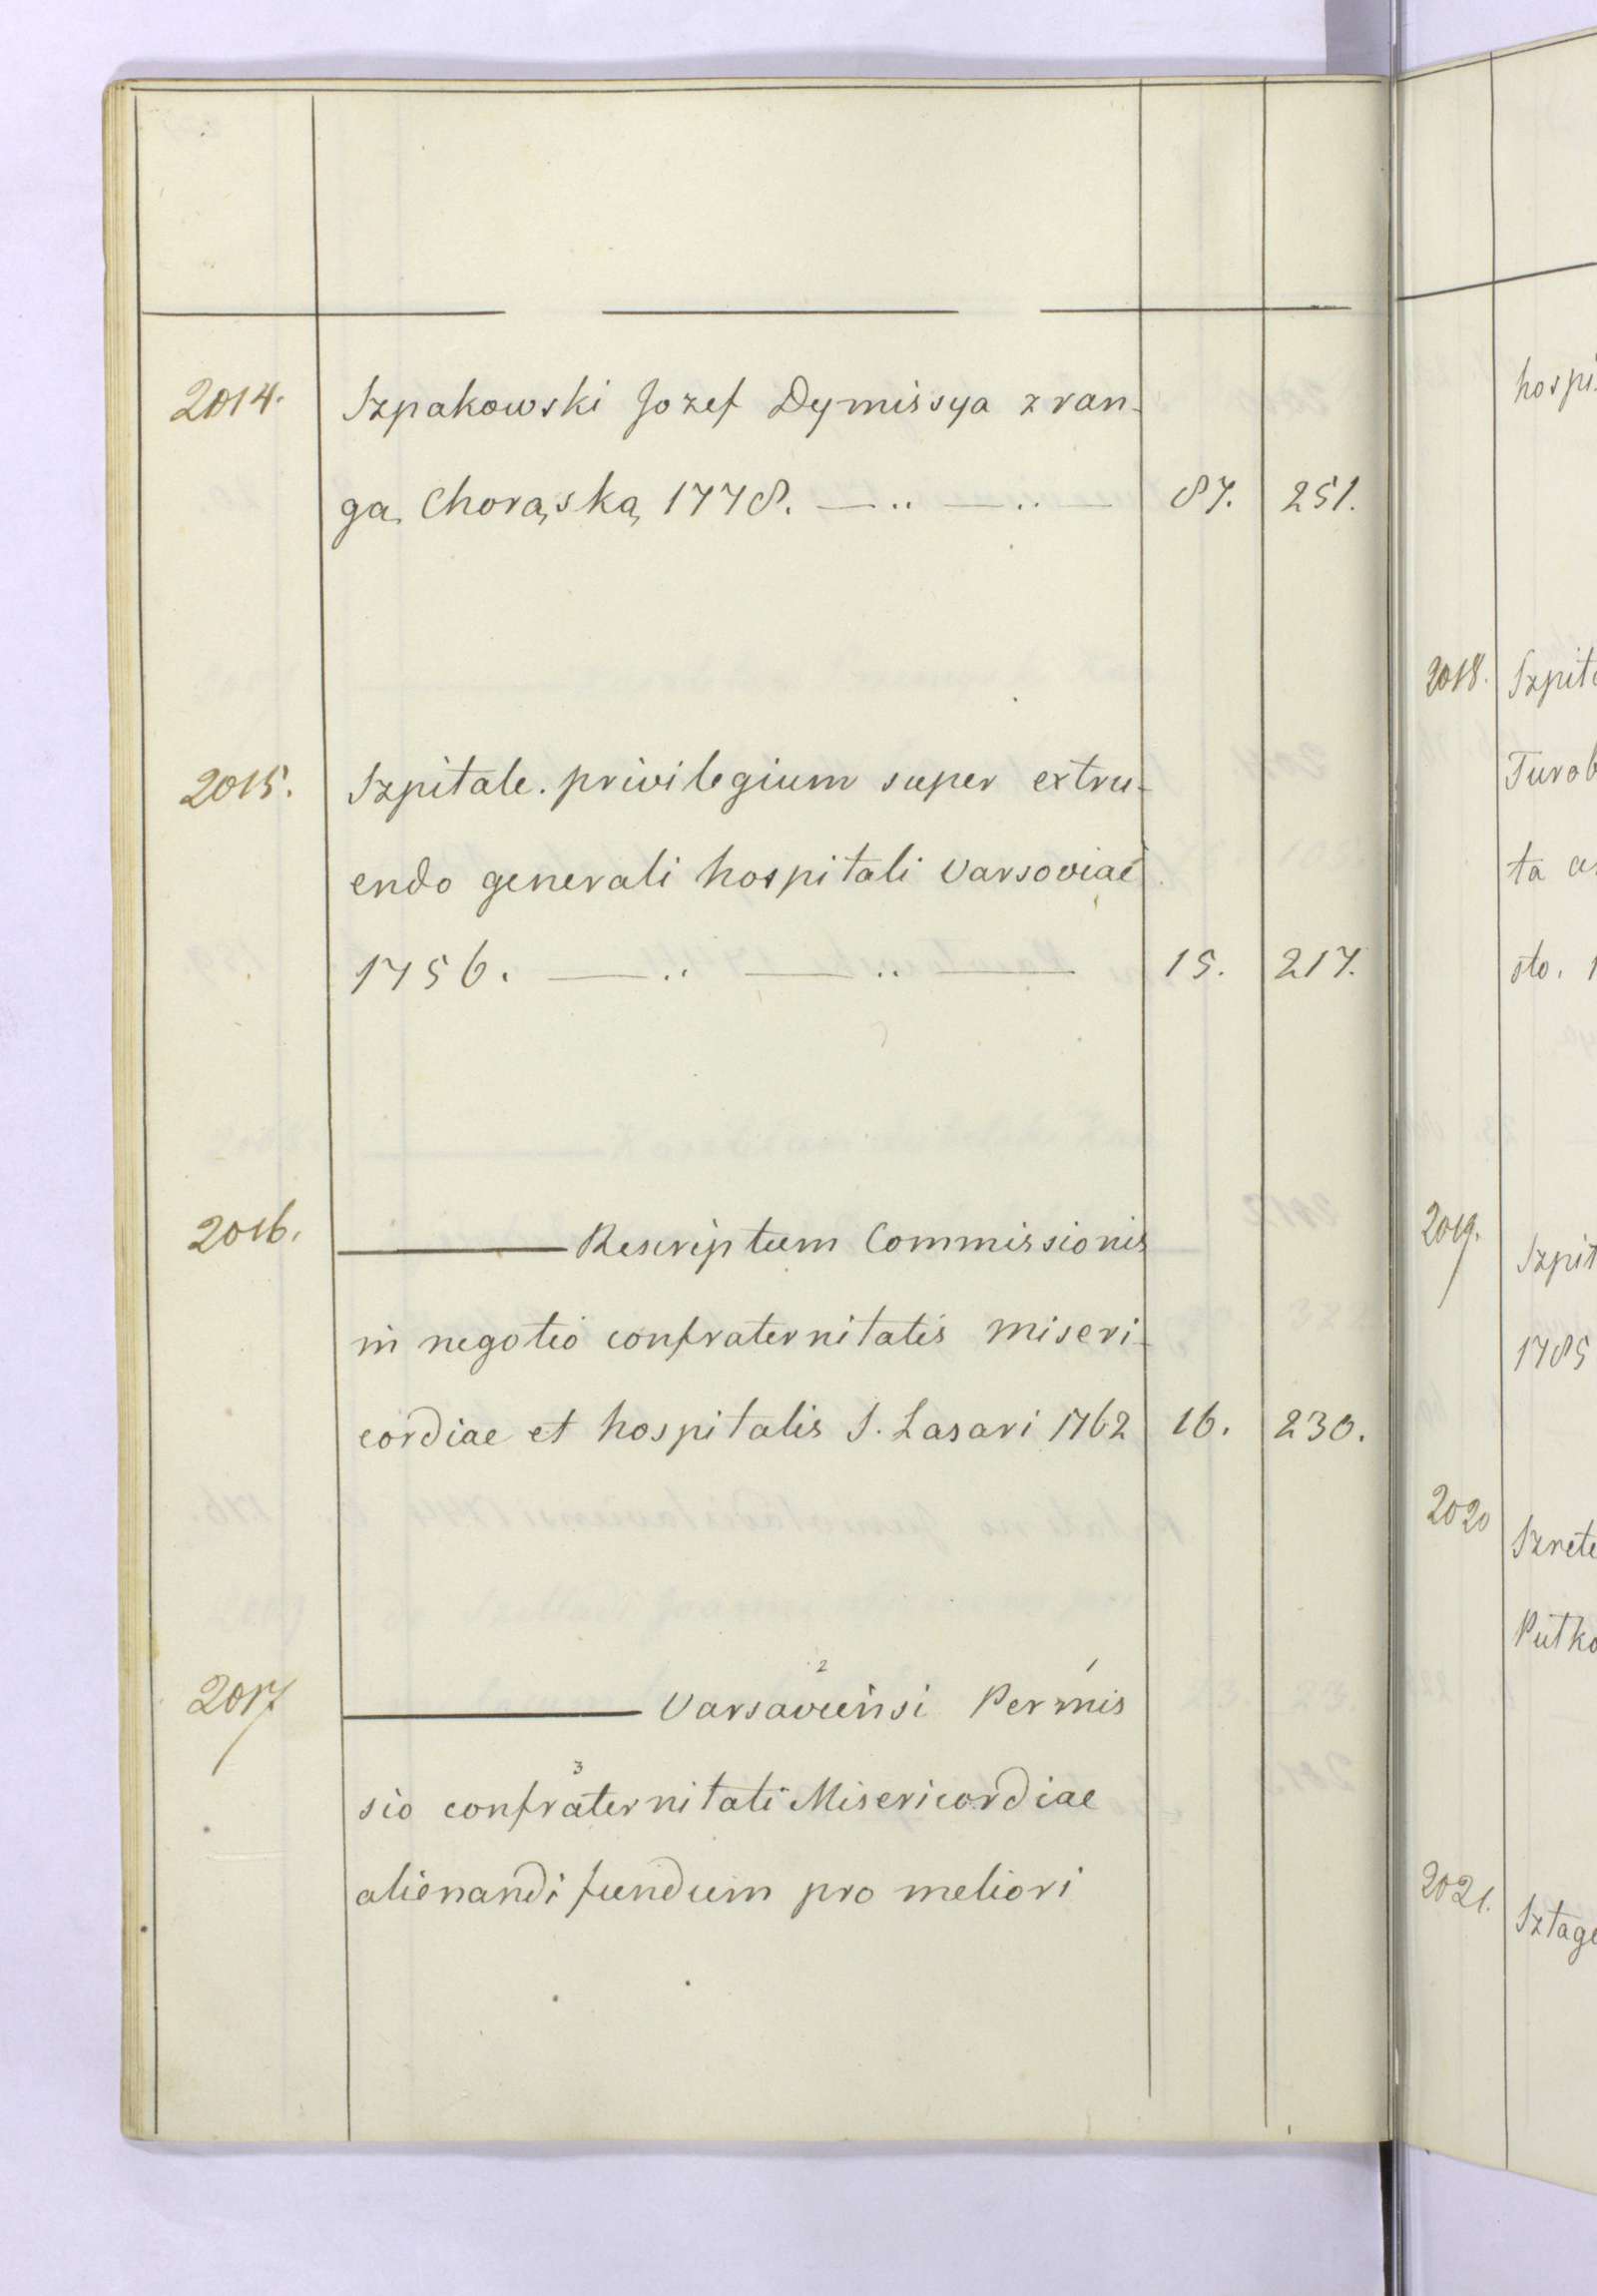 2014. Szpakowski Jozef Dymissya z ran-
gą Chorąską 1778. —..—..— 87. 251.
2015. Szpitale. privilegium super extru-
endo generali hospitali Varsoviae
1756. —..—..— 15. 217.
2016. ——— Rescriptum Commissionis
in negotio confraternitatis miseri-
cordiae et hospitalis S. Lasari 1762 16. 230.
2 1
2017 ——— Varsaviensi Permis
3
sio confraternitati Misericordiae
alienandi fundum pro meliori
hospi
2018. Szpit
Turob
ta a
sto. 1
2019. Szpit
1785
2020 Szrete
Putko
2021. Sztage